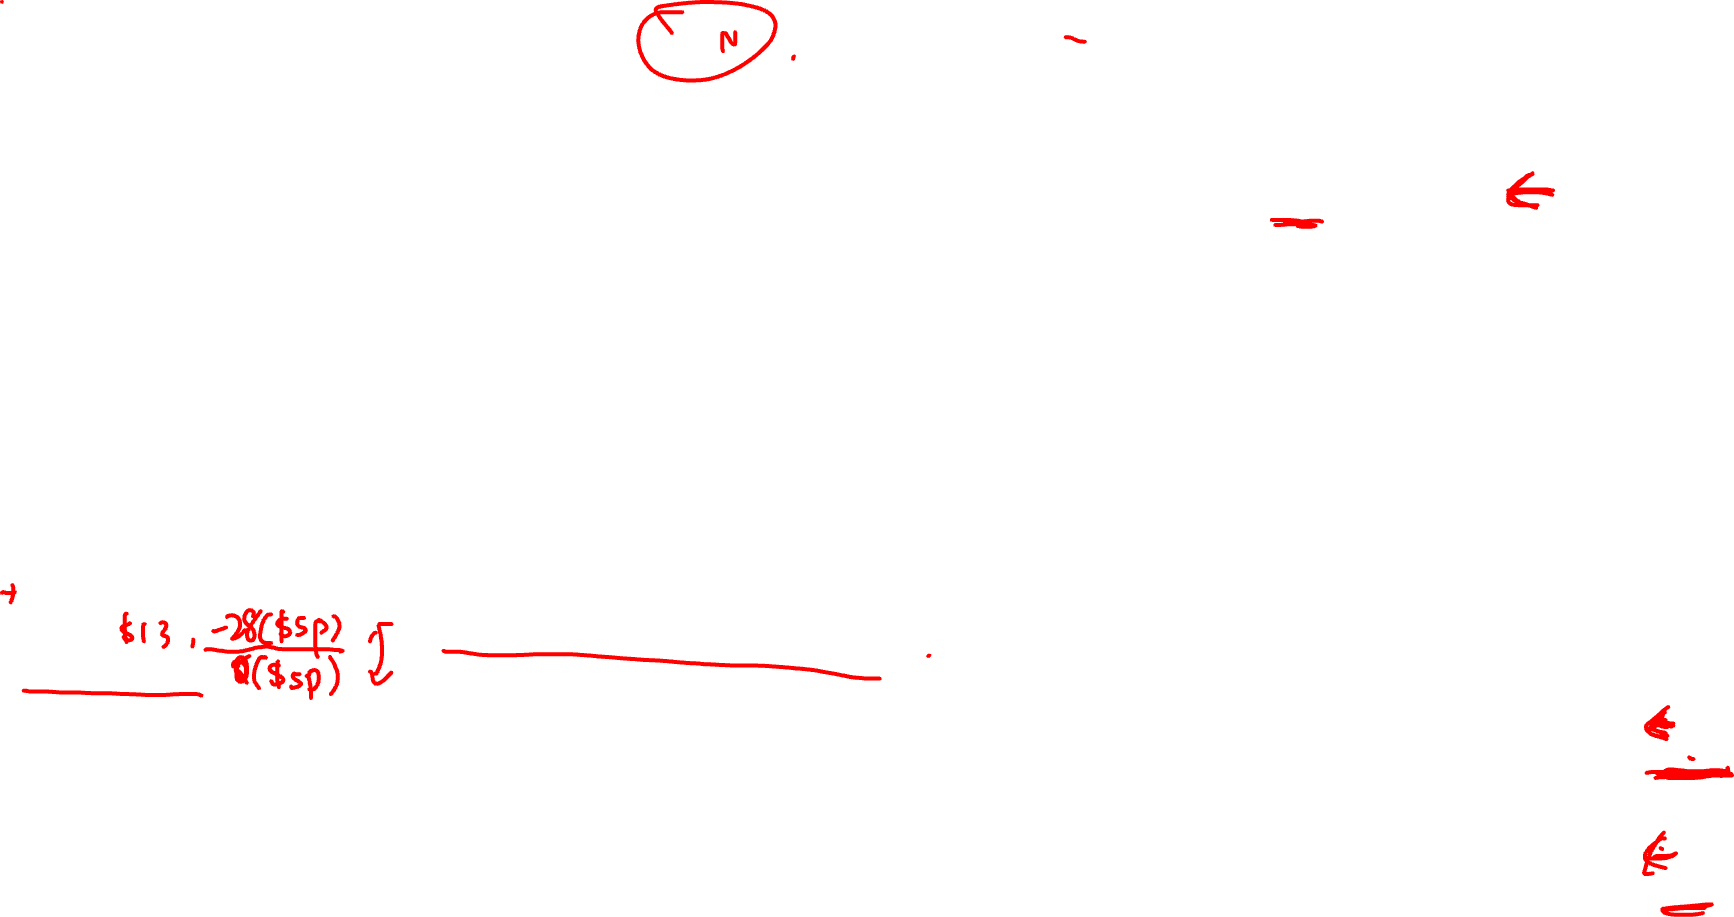 N
$13, -28($sp)
0($sp)